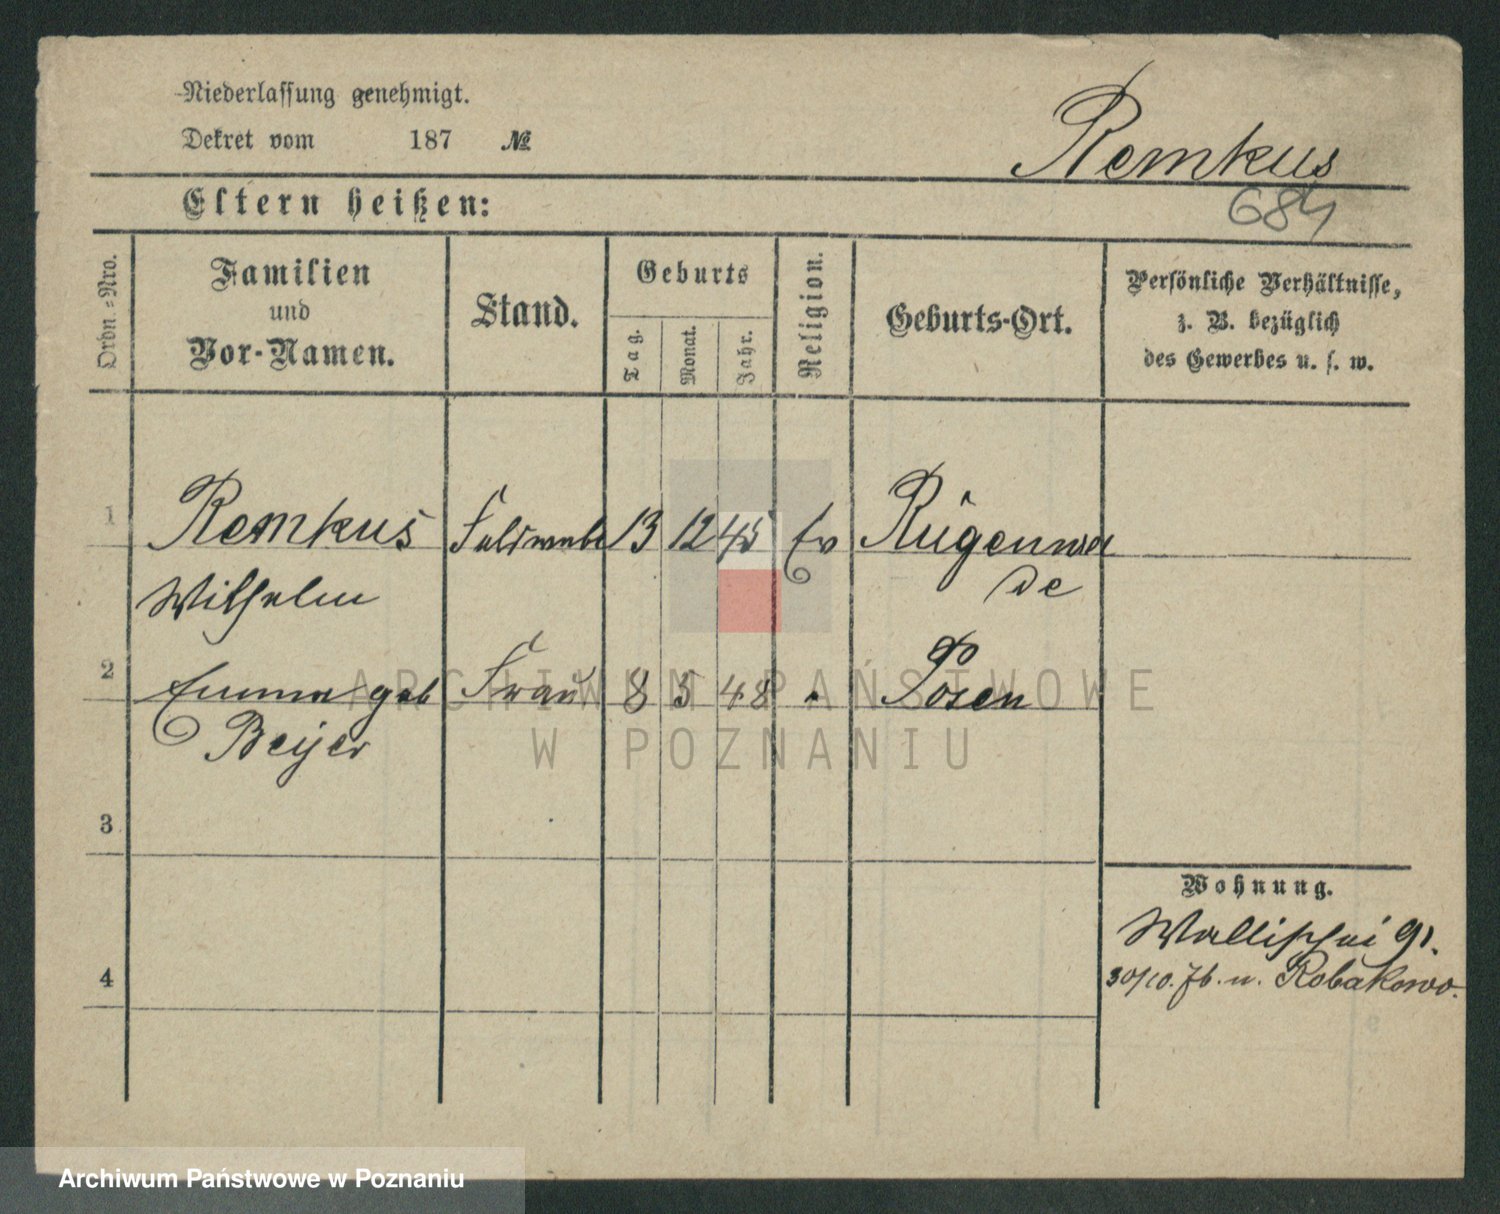 Niederlassung genehmigt.
Dekret vom 187 №
Remkus
Eltern heißen:
684
Ordn.-Nro.
Familien
und
Vor-Namen.
Stand.
Geburts
Tag.
Monat.
Jahr.
Religion.
Geburts-Ort.
Persönliche Verhältnisse,
z. B. bezüglich
des Gewerbes u. s. w.
1 Remkus Feldwebel 13 12 45 Ev Rügenwal
Wilhelm de
2 Emma geb Frau 8 5 48 " Posen
Beijer
3
4
Wohnung.
Wallischei 91.
30/10. 76. n. Robakowo.
ARCHIWUM PAŃSTWOWE
W POZNANIU
Archiwum Państwowe w Poznaniu